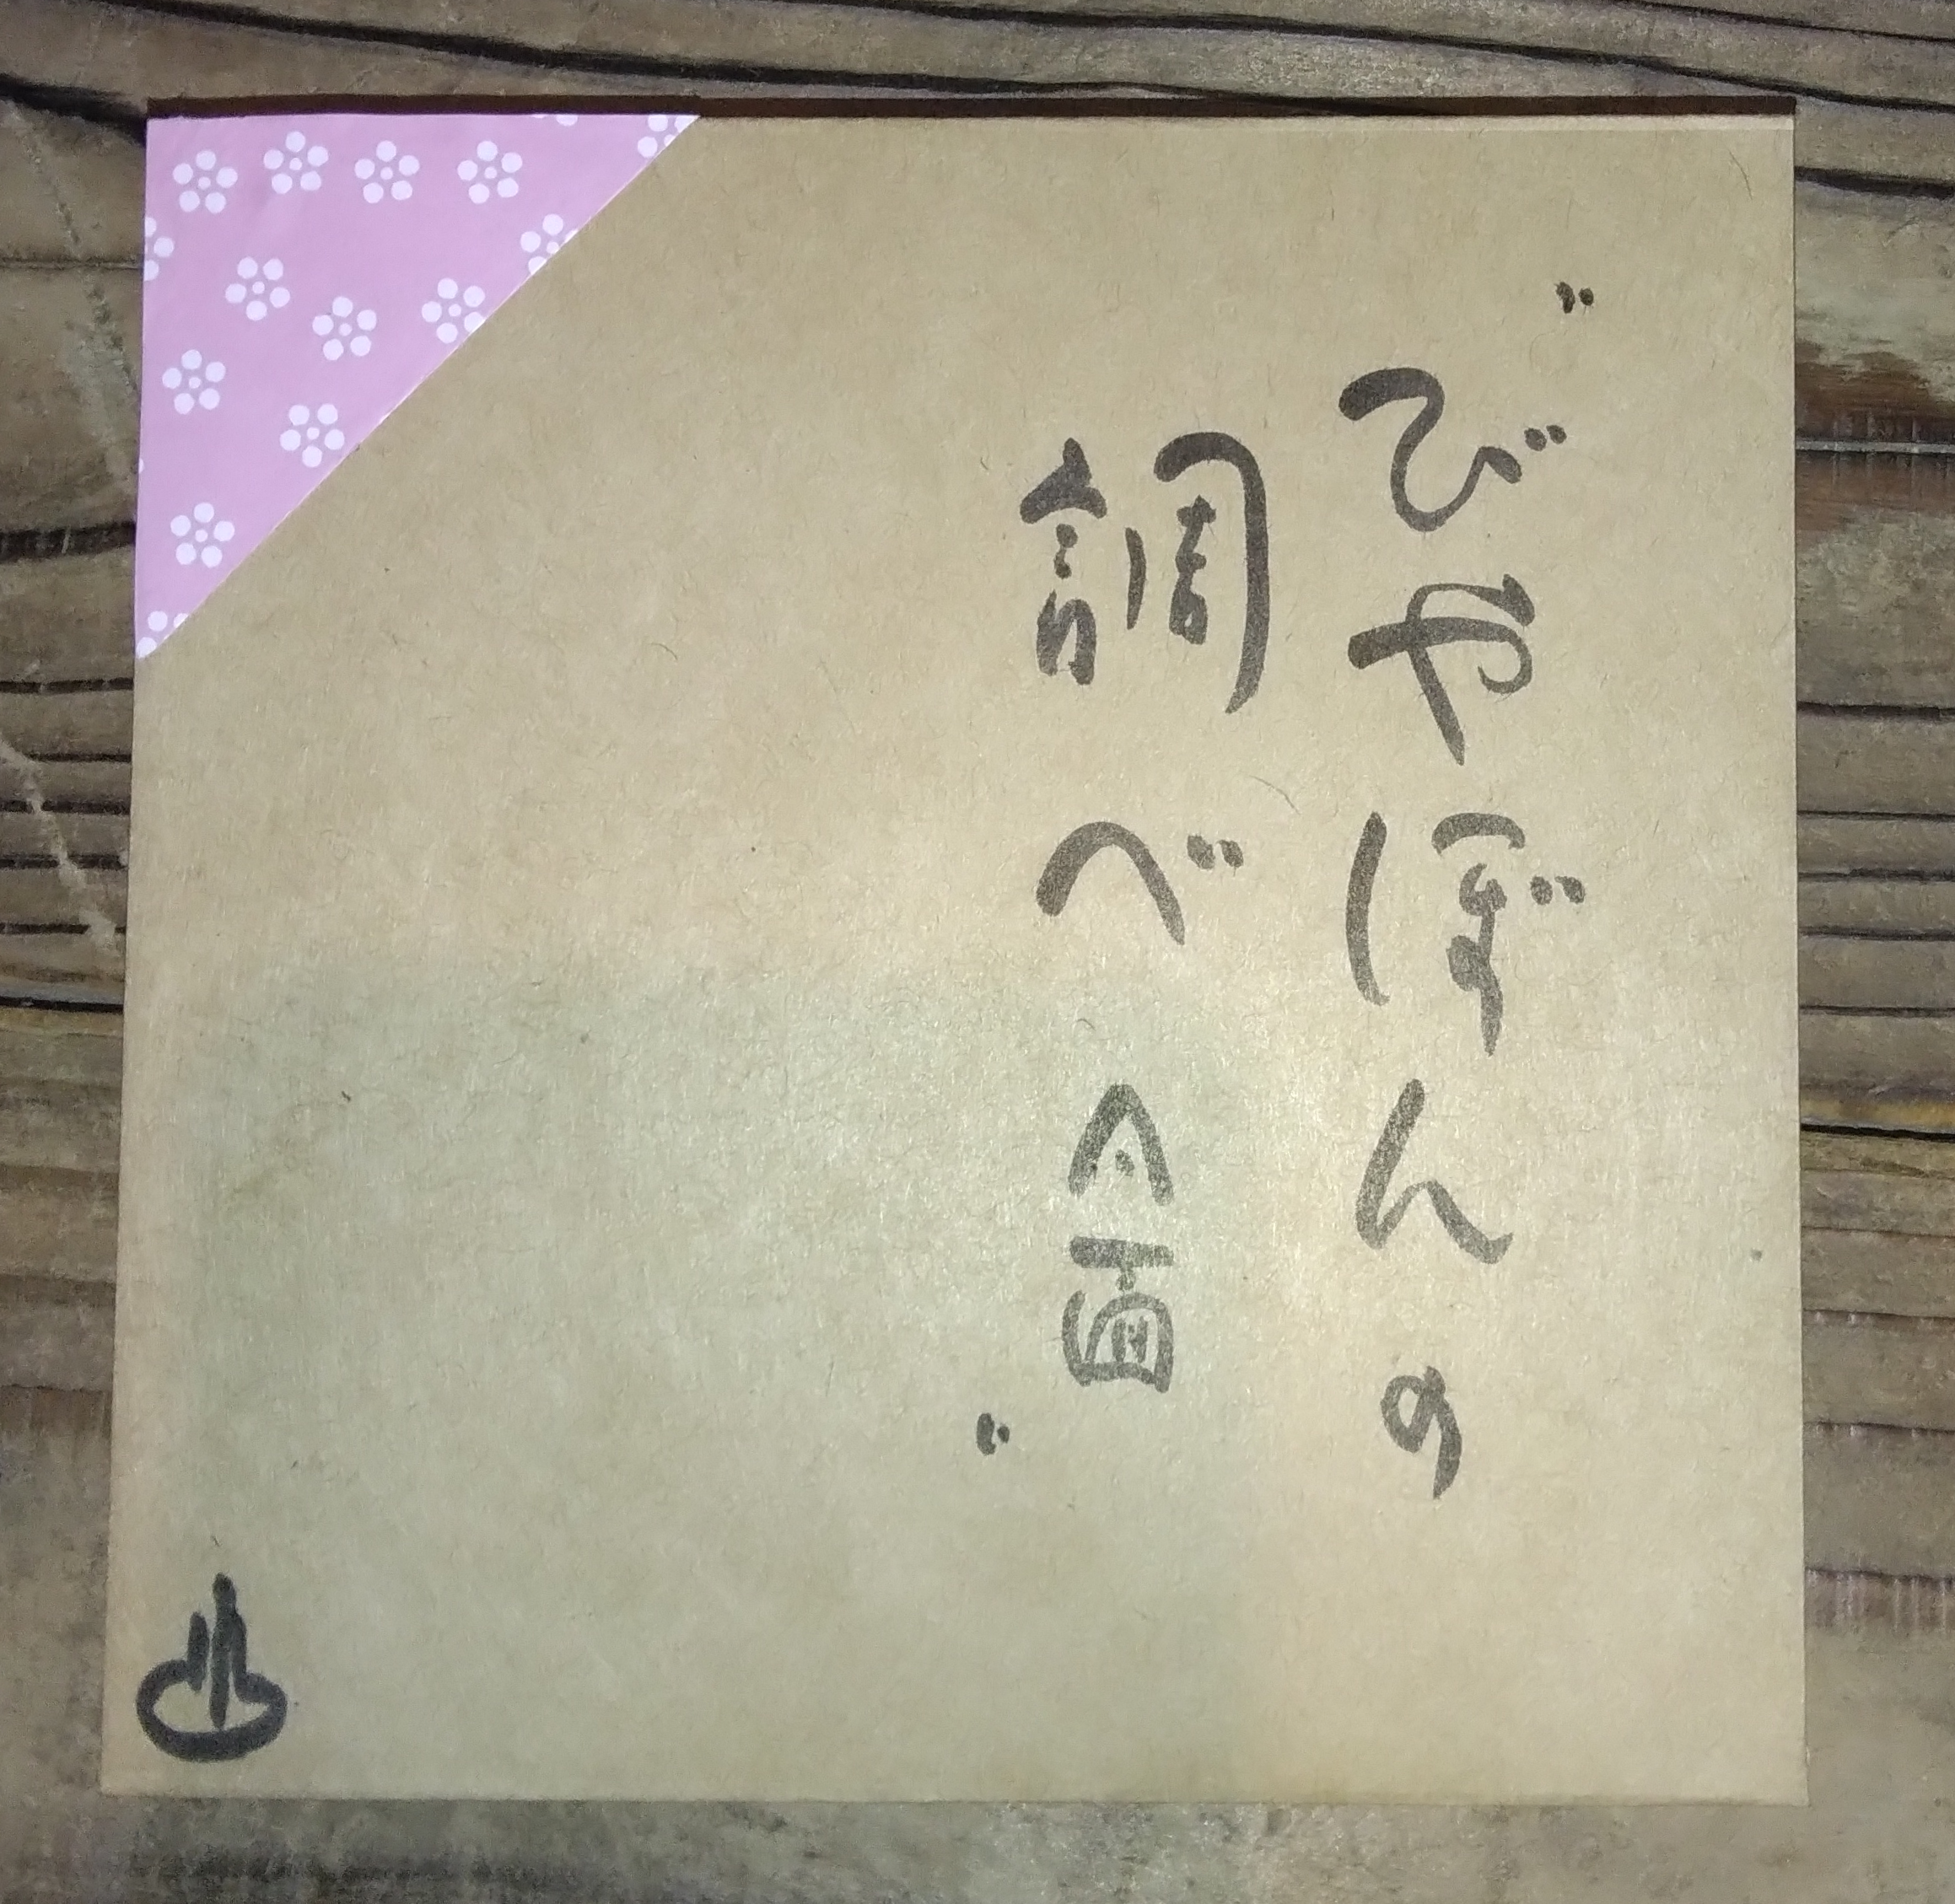 "びやぼんの
調べ"